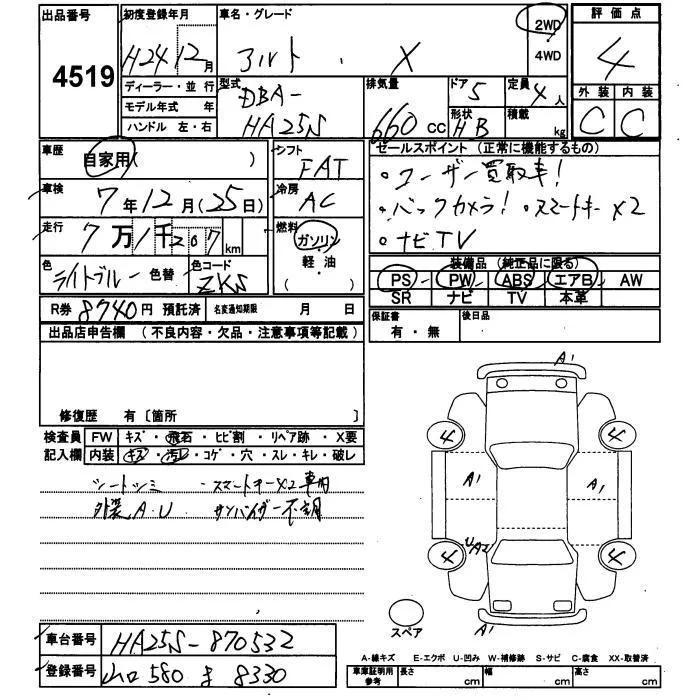 出品番号
4519
初度登録年月
H24 12月
ディーラー・並行
モデル年式 年
ハンドル 左・右
車名・グレード
アルト X
2WD
4WD
型式
DBA-
HA25S
排気量
660 cc
ドア
5
形状
HB
定員
4人
積載
kg
評価点
4
外装 内装
C C
車歴
自家用( )
車検
7年12月(25日)
走行
7万1千207 km
色
ライトブルー 色替
色コード
ZKS
シフト
FAT
冷房
AC
燃料
ガソリン
軽・油
( )
セールスポイント (正常に機能するもの)
・ユーザー買取車!
・バックカメラ! ・スマートキー×2
・ナビTV
装備品 (純正品に限る)
PS PW ABS エアB AW
SR ナビ TV 本革
R券 8740円 預託済 名変通知期限 月 日
保証書
有・無
後日品
出品店申告欄 (不良内容・欠品・注意事項等記載)
修復歴 有〔箇所 〕
検査員 FW キズ・飛石・ヒビ割・リペア跡・X要
記入欄 内装 キズ・汚レ・コゲ・穴・スレ・キレ・破レ
シートシミ スマートキー×2車内
外装A.U サンバイザー不調
A1
4 4
A1 A1
UA2
4 4
A1
スペア
車台番号 HA25S-870532
登録番号 山口 580 ま 8330
A-線キズ E-エクボ U-凹み W-補修跡 S-サビ C-腐食 XX-取替済
車庫証明用
参考
長さ cm 幅 cm 高さ cm